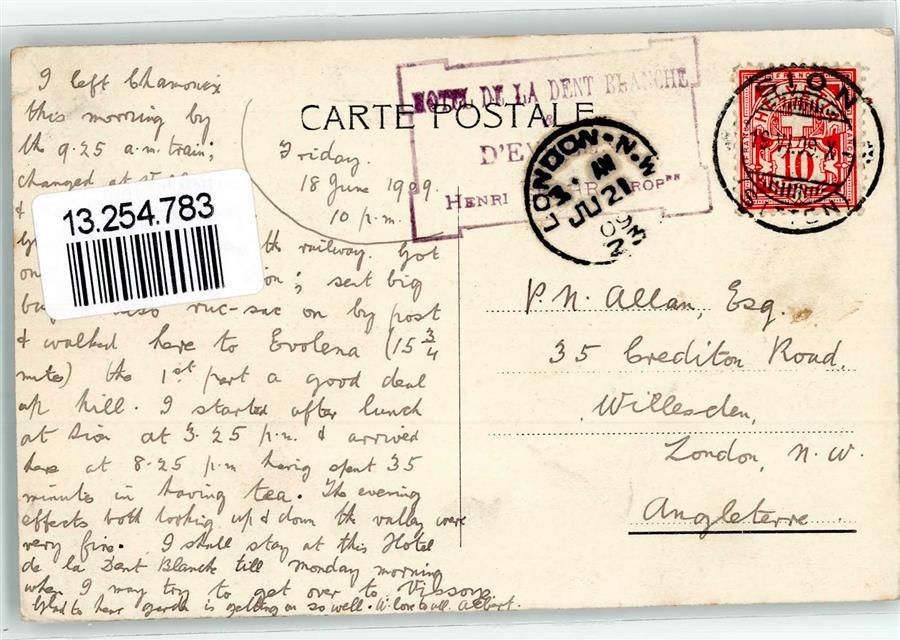 I left Chamonix
this morning by
the 9.25 a.m. train;
changed at
&
the railway. Got
on
; sent big
ruc-sac on by post
& walked here to Evolena (15 3/4
miles) the 1st part a good deal
up hill. I started after lunch
at Sion at 3.25 p.m. & arrived
here at 8.25 p.m having spent 35
minutes in having tea. The evening
effects both looking up & down the valley were
very fine. I shall stay at this Hotel
de la Dent Blanche till Monday morning
when I may try to get over to Vissoye.
Glad to hear garden is getting on so well. W. love to all. Albert.
Friday.
18 June 1909.
10 p.m.
13.254.783
CARTE POSTALE
HOTEL DE LA DENT BLANCHE
&
D'EV
HENRI
PROP
LONDON. N.W.
AM
JU 21
09
SION
SITTEN
HELVETIA
FRANCO
10
P. N. Allan, Esq.
35 Crediton Road,
Willesden,
London, N.W.
Angleterre